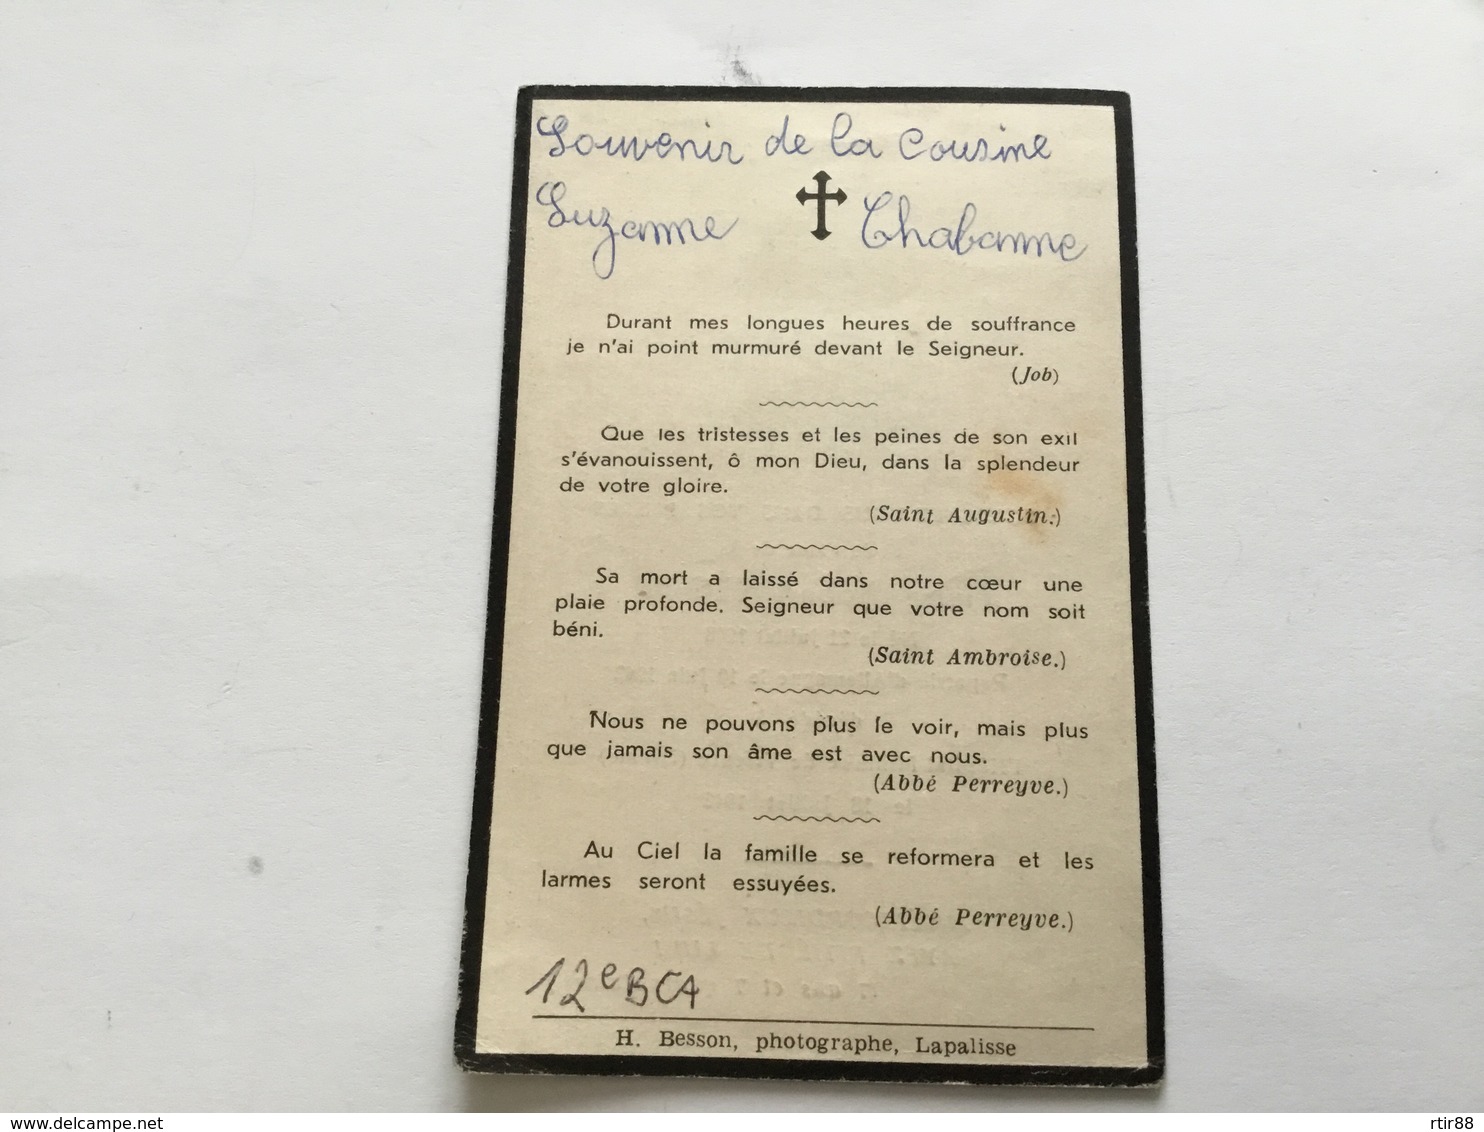 Souvenir de la Cousine
Suzanne Chabanne
Durant mes longues heures de souffrance
je n'ai point murmuré devant le Seigneur.
(Job)
Que les tristesses et les peines de son exil
s'évanouissent, ô mon Dieu, dans la splendeur
de votre gloire.
(Saint Augustin.)
Sa mort a laissé dans notre cœur une
plaie profonde. Seigneur que votre nom soit
béni.
(Saint Ambroise.)
Nous ne pouvons plus le voir, mais plus
que jamais son âme est avec nous.
(Abbé Perreyve.)
Au Ciel la famille se reformera et les
larmes seront essuyées.
(Abbé Perreyve.)
12e BCA
H. Besson, photographe, Lapalisse
delcampe.net
rtir88